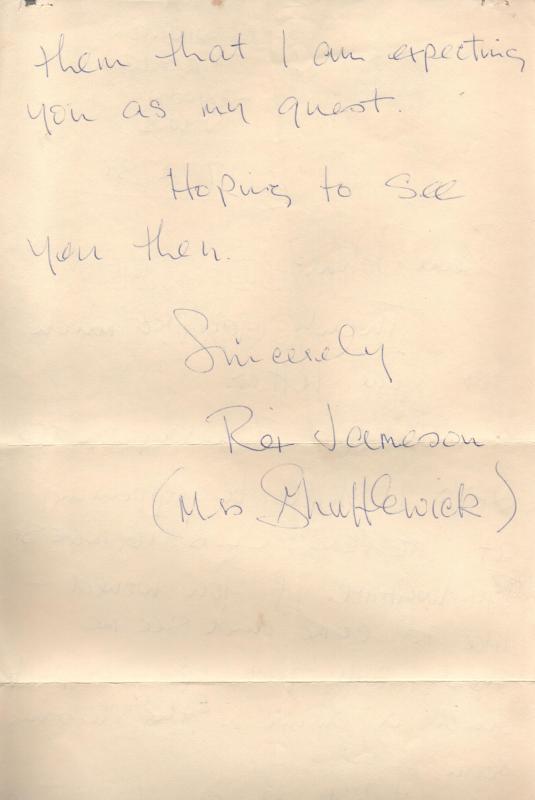 them that I am expecting
you as my guest.
Hoping to see
you then.
Sincerely
Rex Jameson.
(Mrs Shufflewick)